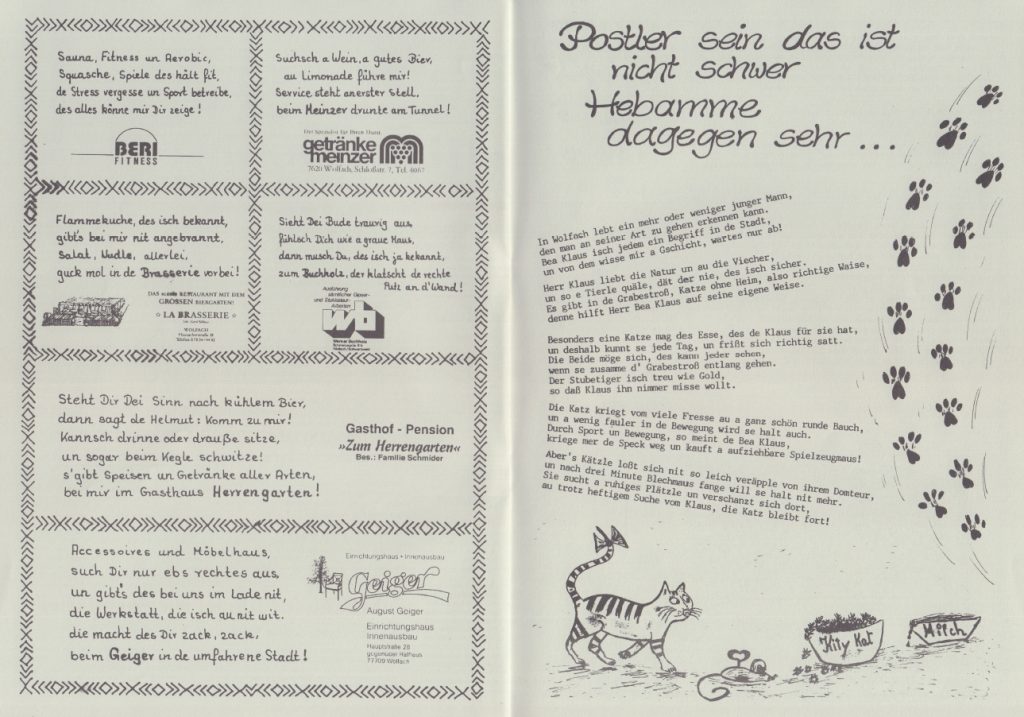 Sauna, Fitness un Aerobic,
Squasche, Spiele des hält fit,
de Stress vergesse un Sport betreibe,
des alles könne mir Dir zeige!
BERI
FITNESS
Suchsch a Wein, a gutes Bier,
au Limonade führe mir!
Service steht anerster Stell,
beim Meinzer drunte am Tunnel!
Der Spezialist für Ihren Durst
getränke
meinzer
7620 Wolfach, Schloßstr. 7, Tel. 6057
Flammekuche, des isch bekannt,
gibt's bei mir nit angebrannt,
Salat, Nudle, allerlei,
guck mol in de Brasserie vorbei!
RESTAURANT MIT DEM
GROSSEN BIERGARTEN!
* LA BRASSERIE *
WOLFACH
Sieht Dei Bude traurig aus,
fühlsch Dich wie a graue Maus,
dann musch Du, des isch ja bekannt,
zum Buchholz, der klatscht de rechte
Putz an d'Wand!
Ausführung
sämtlicher Gipser-
und Stukkateur-
Arbeiten
wb
Werner Buchholz
Steht Dir Dei Sinn nach kühlem Bier,
dann sagt de Helmut: Komm zu mir!
Kannsch drinne oder drauße sitze,
un sogar beim Kegle schwitze!
s'gibt Speisen un Getränke aller Arten,
bei mir im Gasthaus Herrengarten!
Gasthof - Pension
»Zum Herrengarten«
Bes.: Familie Schmider
Accessoires und Möbelhaus,
such Dir nur ebs rechtes aus,
un gibt's des bei uns im Lade nit,
die Werkstatt, die isch au nit wit.
die macht des Dir zack, zack,
beim Geiger in de umfahrene Stadt!
Einrichtungshaus • Innenausbau
Geiger
August Geiger
Einrichtungshaus
Innenausbau
Hauptstraße 28
gegenüber Rathaus
77709 Wolfach
Postler sein das ist
nicht schwer
Hebamme
dagegen sehr ...
In Wolfach lebt ein mehr oder weniger junger Mann,
den man an seiner Art zu gehen erkennen kann.
Bea Klaus isch jedem ein Begriff in de Stadt,
un von dem wisse mir a Gschicht, wertes nur ab!
Herr Klaus liebt die Natur un au die Viecher,
un so e Tierle quäle, dät der nie, des isch sicher.
Es gibt in de Grabestroß, Katze ohne Heim, also richtige Waise,
denne hilft Herr Bea Klaus auf seine eigene Weise.
Besonders eine Katze mag des Esse, des de Klaus für sie hat,
un deshalb kunnt se jede Tag, un frißt sich richtig satt.
Die Beide möge sich, des kann jeder sehen,
wenn se zusamme d' Grabestroß entlang gehen.
Der Stubetiger isch treu wie Gold,
so daß Klaus ihn nimmer misse wollt.
Die Katz kriegt vom viele Fresse au a ganz schön runde Bauch,
un a wenig fauler in de Bewegung wird se halt auch.
Durch Sport un Bewegung, so meint de Bea Klaus,
kriege mer de Speck weg un kauft a aufziehbare Spielzeugmaus!
Aber's Kätzle loßt sich nit so leich veräpple von ihrem Domteur,
un nach drei Minute Blechmaus fange will se halt nit mehr.
Sie sucht a ruhiges Plätzle un verschanzt sich dort,
au trotz heftigem Suche vom Klaus, die Katz bleibt fort!
Kity Kat
Milch